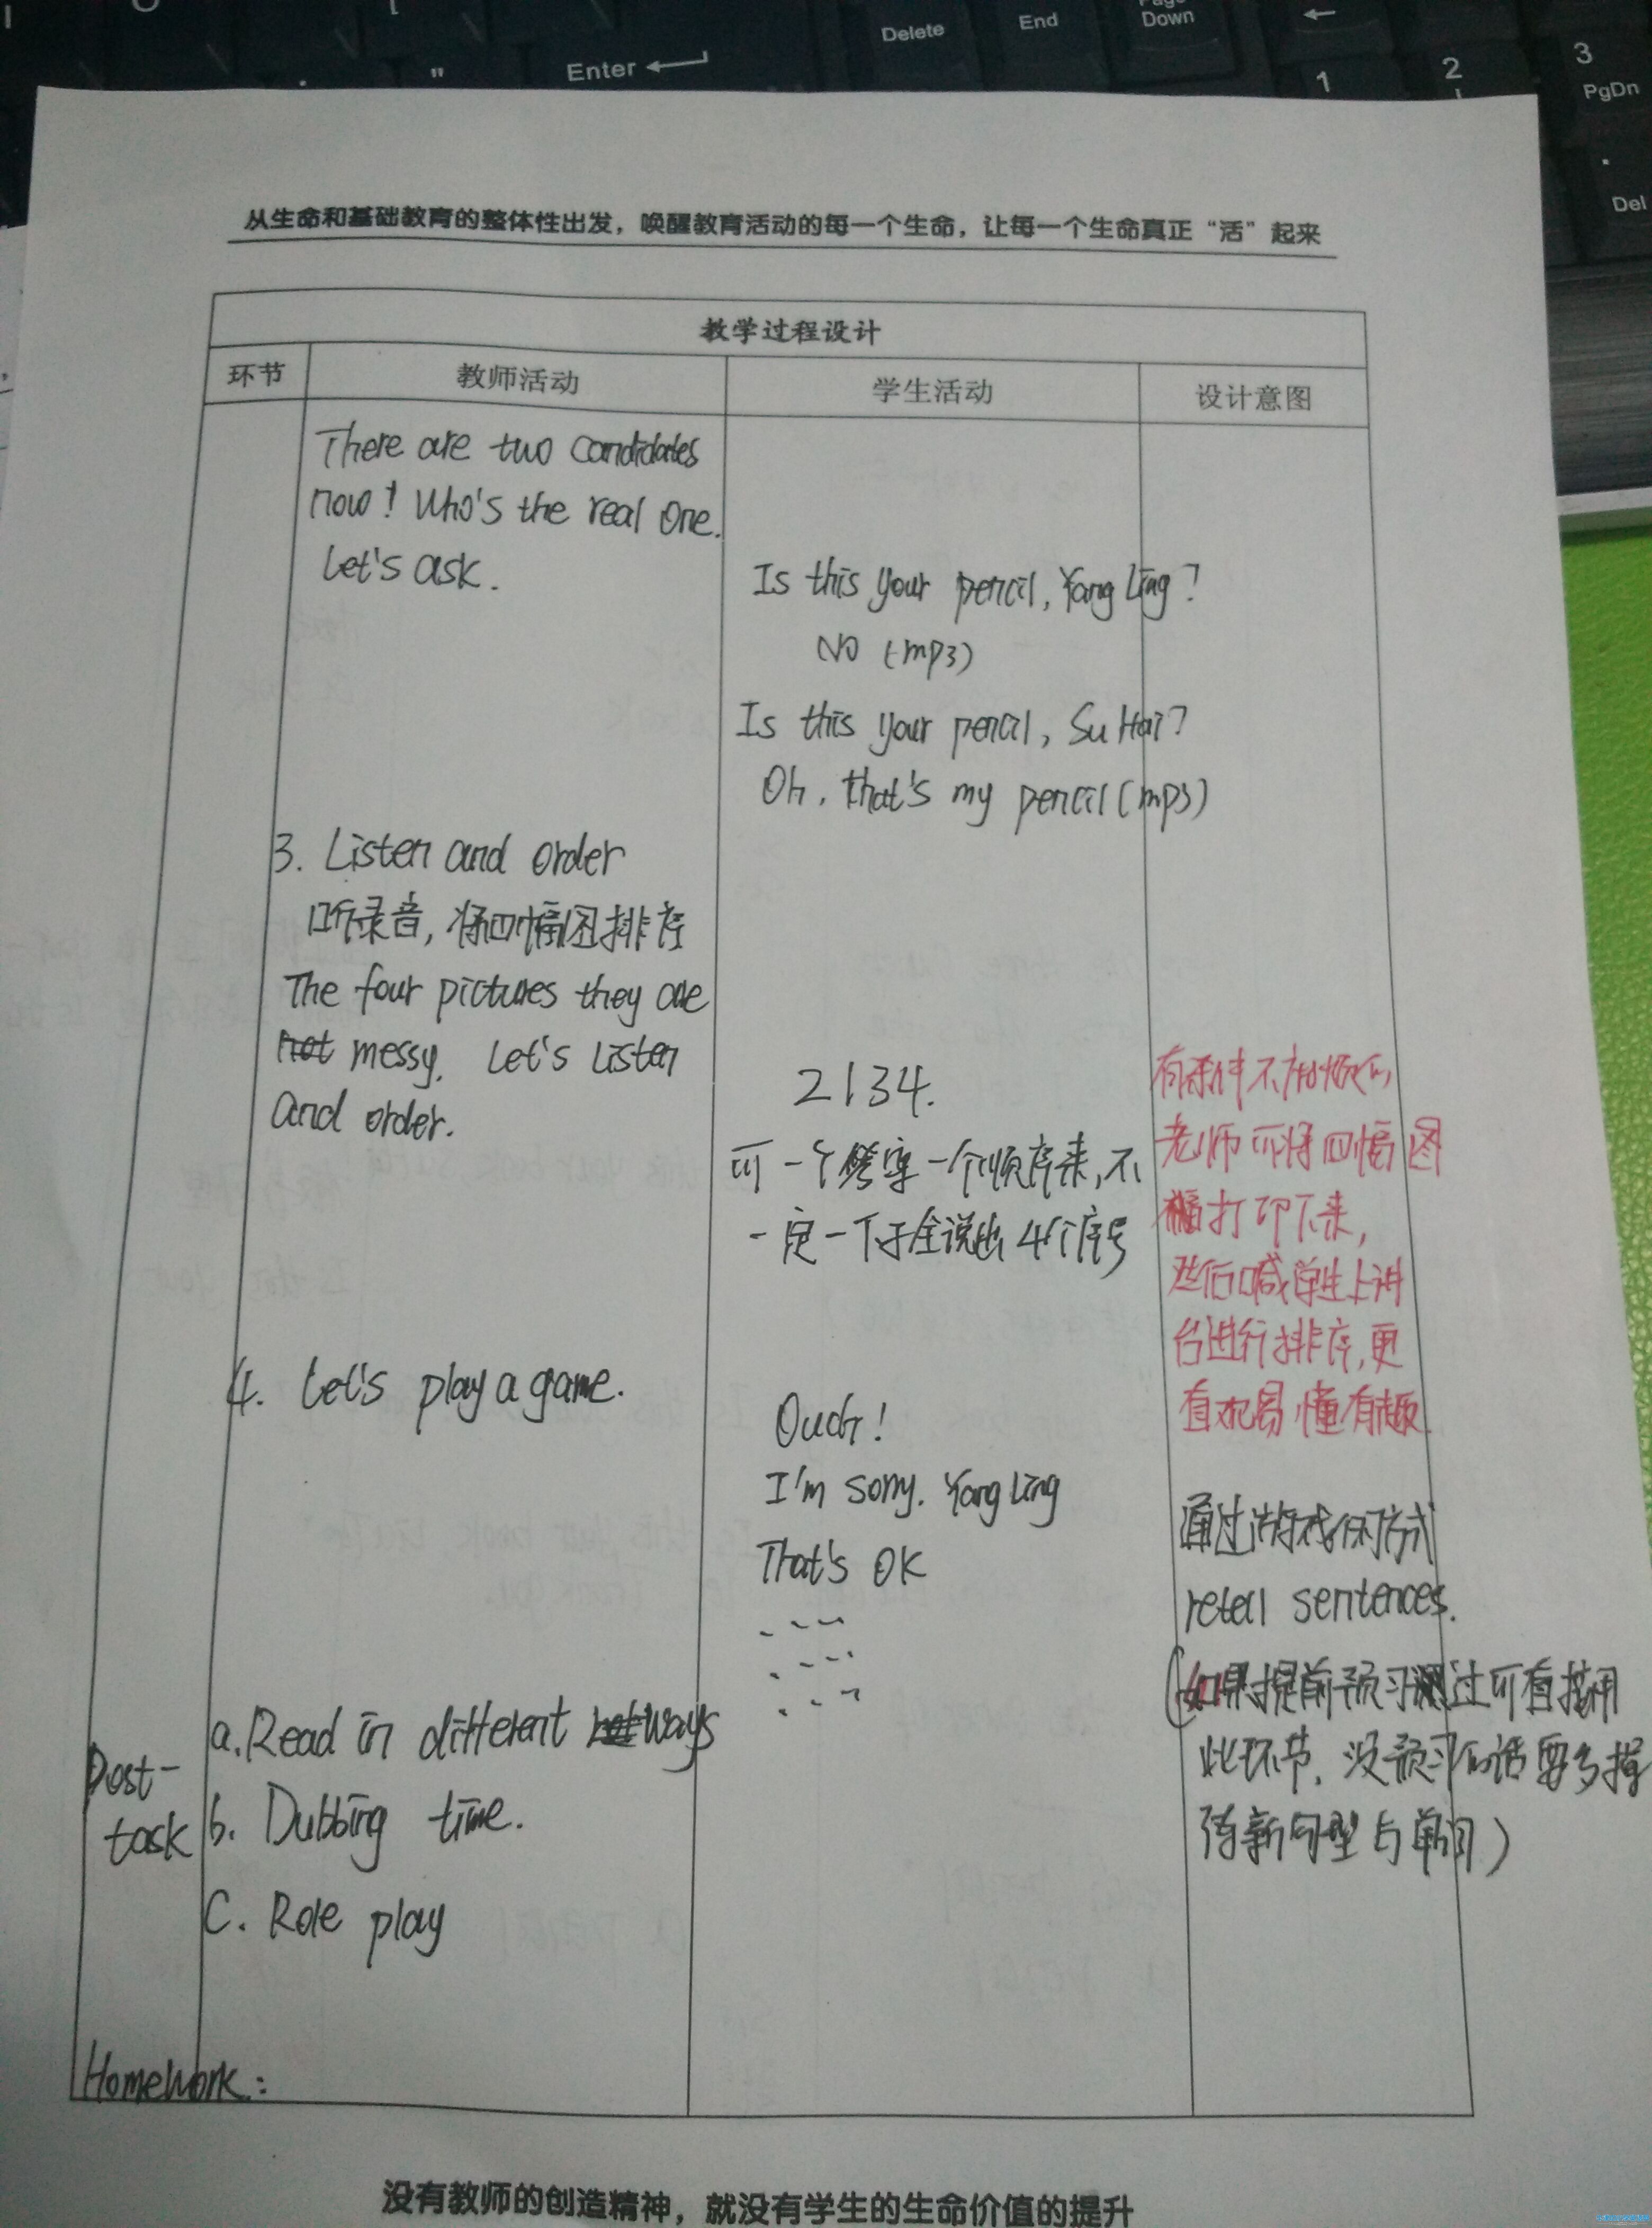 Delete
End
Page
Down
Enter
1
2
3
PgDn
.
Del
从生命和基础教育的整体性出发，唤醒教育活动的每一个生命，让每一个生命真正“活”起来
教学过程设计
环节 教师活动 学生活动 设计意图
There are two candidates
now! Who's the real one.
Let's ask.
Is this your pencil, Yang Ling?
No (mp3)
Is this your pencil, Su Hai?
Oh, that's my pencil (mp3)
3. Listen and order
听录音，将四幅图排序
The four pictures they are
not messy. Let's listen
and order.
2134.
可一个一个顺序来，不
一定一下子全说出4个序号
有条件不怕烦的，
老师可将四幅图
打印下来，
然后喊学生上讲
台进行排序，更
直观易懂有趣
4. Let's play a game.
Ouch!
I'm sorry. Yang Ling
That's OK
通过游戏的方式
retell sentences.
(如果提前预习过可直接用
此环节，没预习的话要多操
练新句型与单词)
Post-
task
a. Read in different ways
b. Dubbing time.
C. Role play
Homework:
没有教师的创造精神，就没有学生的生命价值的提升